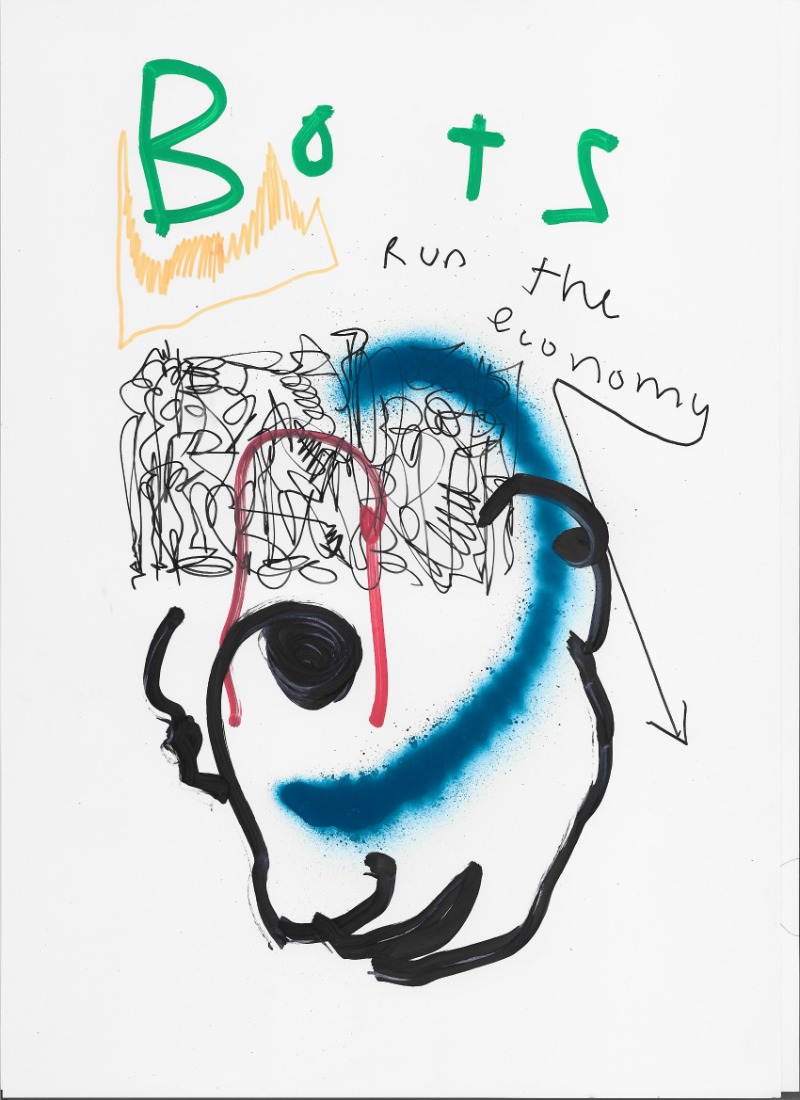 Bots
Run the
economy